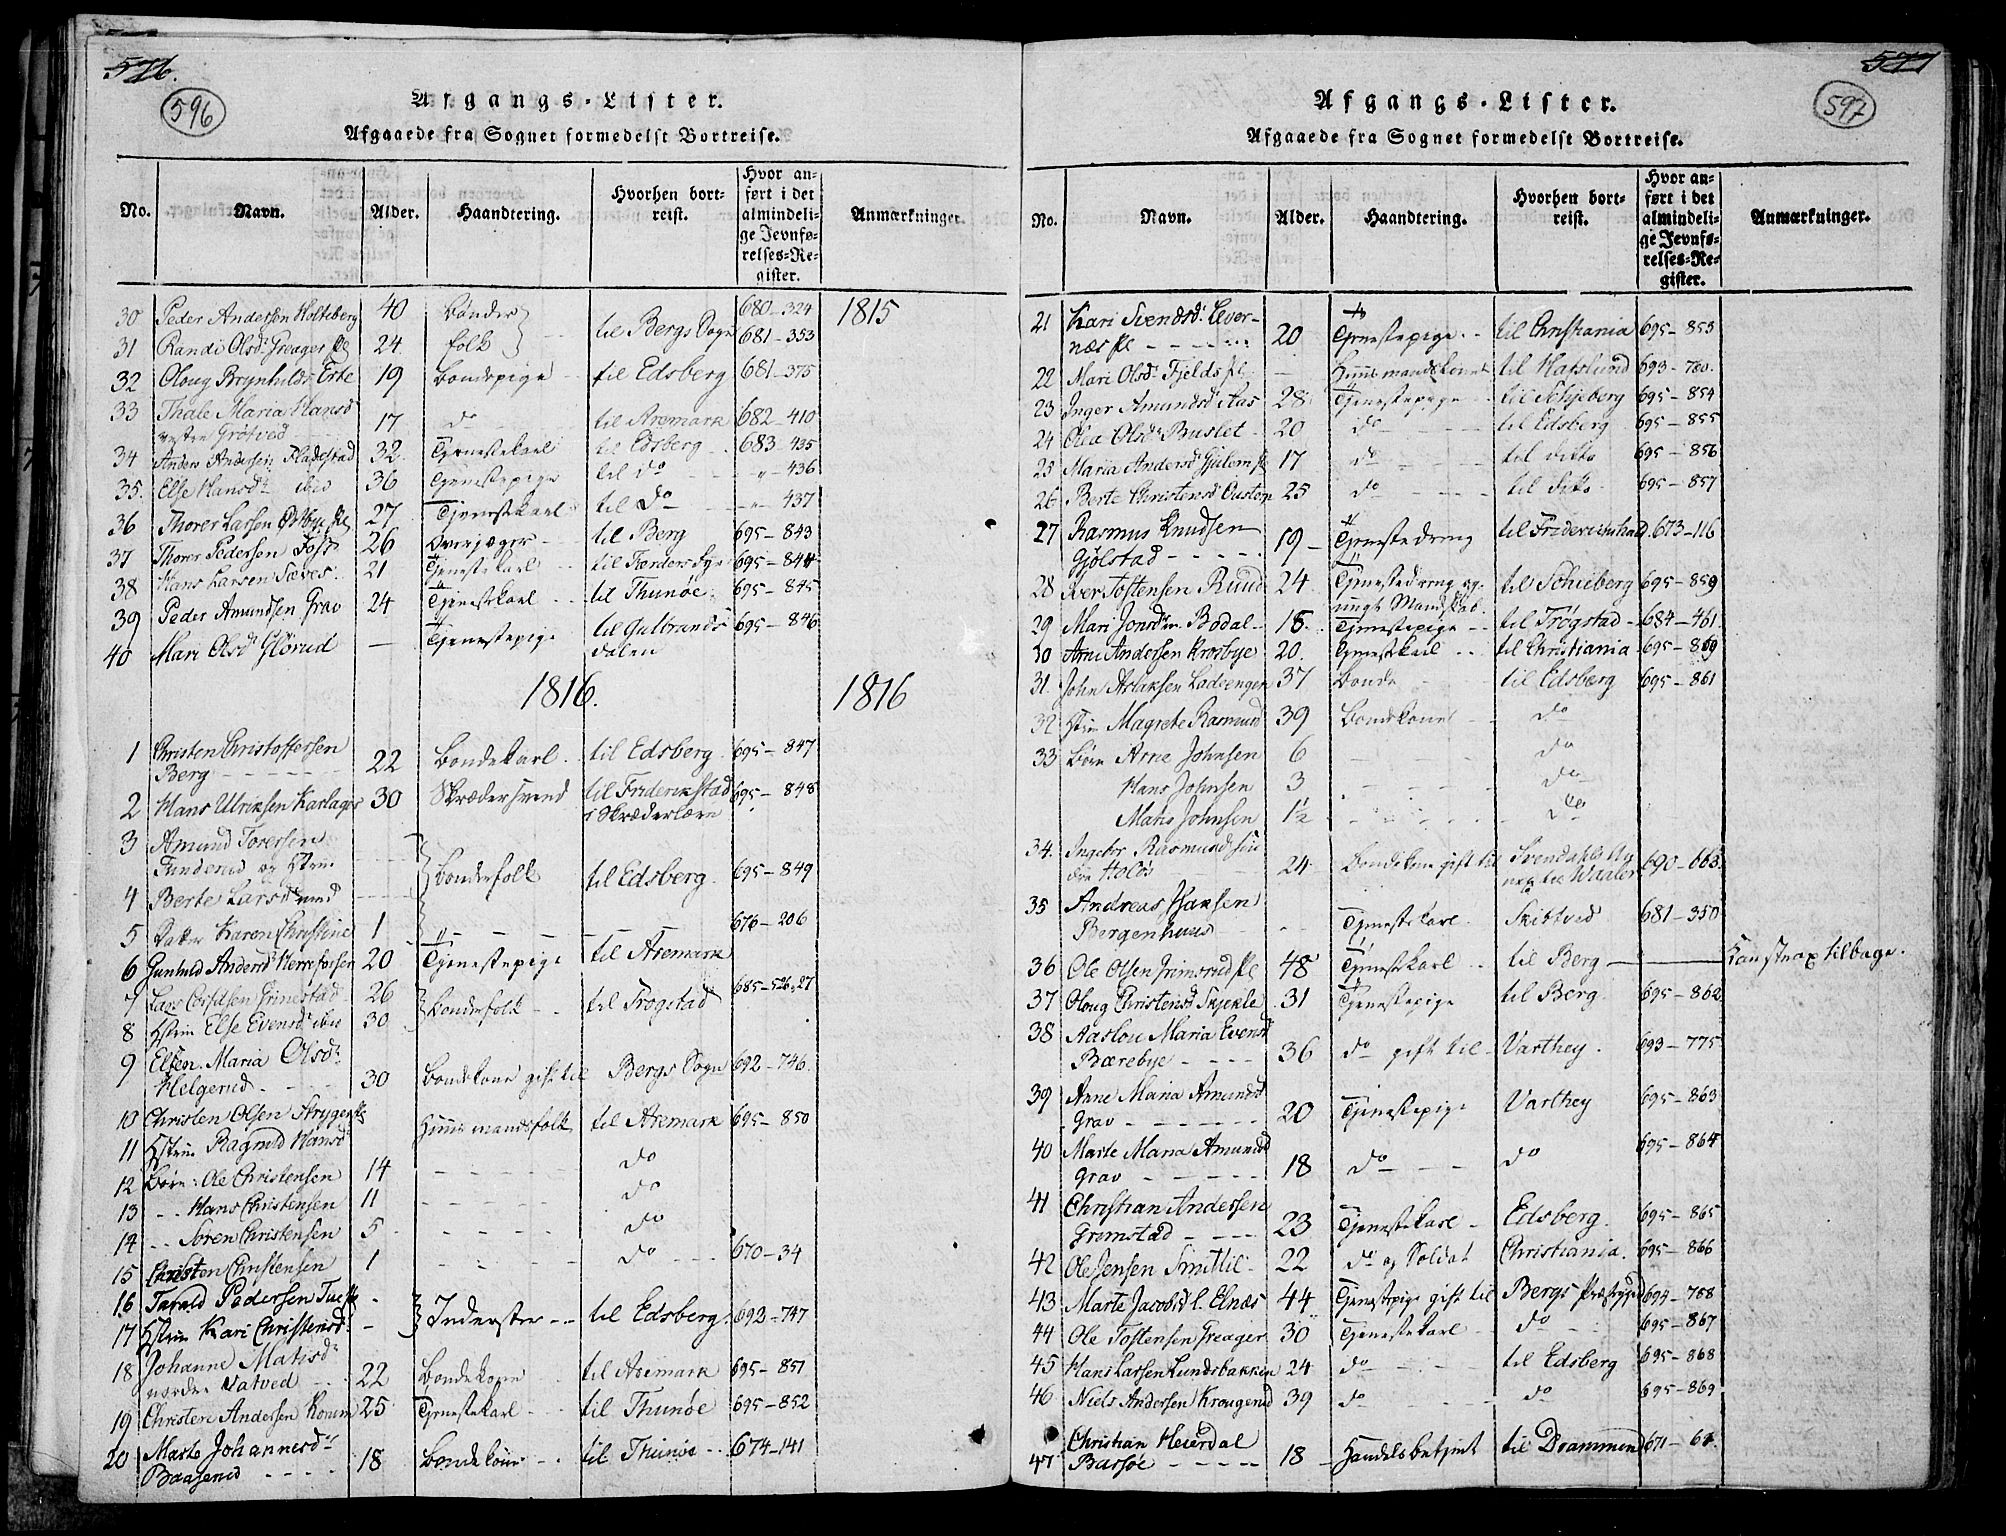 576.
596
Afgangs-Lister.
Afgaaede fra Sognet formedelst Bortreise.
No. Navn. Alder. Haandtering. Hvorhen bortreist. Hvor anført i det almindelige Jevnførelses-Register. Anmærkninger.
30 Peder Andersen Holteberg 40 Bønder 680-324 1815
31 Randi Olsdr Greager pl 24 folk til Bergs Sogn 681-353
32 Oloug Brynhildsdr Erte 19 Bondepige til Edsberg 681-375
33 Thale Maria Hansd
vestre Grøtved 17 do til Aremark 682-410
34 Anders Andersen Fladestad 32 Tjenestekarl til Edsberg 683-435
35. Else Hansdr ibid 36 Tjenestepige til do " - 436
36 Thorer Larsen Østbye pl 27 Tjenestekarl til Do " - 437
37 Thorer Pedersen Foss 26 Overjæger til Berg 695-843
38 Hans Larsen Sæves 21 Tjenestekarl til Færders Fyr 695-844
39 Peder Amundsen Grav 24 Tjenestekarl til Thunøe 695-845
40 Mari Olsd Glørud — Tjenestepige til Gulbrands 695-846
dalen
1816. 1816
1 Christen Christoffersen
Berg 22 Bondekarl til Edsberg 695-847
2 Hans Ulriksen Karlager 30 Skrædersvend til Friderikstad 695-848
i Skræderlære
3 Amund Torersen
Funderud og Hstru
Bondefolk til Edsberg 695-849
4 Berte Larsdr med
5 Datter Karen Christine 1 676-206
6 Gunhild Andersd Herrefosser 20 Tjenestepige til Aremark
7 Lars Grinestad 26 685-526.27
Bondefolk til Trogstad
8 Hstru Else Evensdr ibid 30
9 Elsen Maria Olsdr
Helgerud 30 Bondekone gift til Bergs Sogn 692-746
10 Christen Olsen Stryger pl Huusmandsfolk til Aremark 695-850
11 Hstru Ragnild Hansd do
12 Børn: Ole Christensen 14 do
13 - - Hans Christensen 11
14 - - Soren Christensen 5 do
15 Christen Christensen 1 do 670-34
16 Tarald Pedersen Tue pl -
Inderster til Edsberg 692-747
17 Hstru Kari Christensd -
18 Johanne Matisdr
nordre Vatved 22 Bondekone til Aremark 695-851
19 Christen Andersen Korum 25 Tjenestekarl til Thunøe 695-852
20 Marte Johannesdr
Baaserud 18 Bondekone til Thunøe 674-141
577
597
Afgangs-Lister.
Afgaaede fra Sognet formedelst Bortreise.
No. Navn. Alder. Haandtering. Hvorhen bortreist. Hvor anført i det almindelige Jevnførelses-Register. Anmærkninger.
21 Kari Svendsdr Elver-
næs pl 20 Tjenestepige til Christiania 695-853
22 Mari Olsdr Fjelds pl — Huusmandskone til Hafslund 693-780
23 Inger Amundsd Aas 28 Tjenestepige til Schjeberg 695-854
24 Olea Olsdr Buslet 20 do til Edsberg 695-855
25 Maria Andersd Gjulem pl 17 do til ditto 695-856
26 Berte Christensd Oustorp 25 do til dito 695-857
27 Rasmus Knudsen
Gjølstad 19 Tjenestedreng til Friderichshald 673-116
28 Iver Tostensen Ruud 24 Tjenestedreng og til Schieberg 695-859
ungt Mandskab
29 Mari Jonsdr Bodal 18 Tjenestepige til Trøgstad 684-461
30 Arne Andersen Krosbye 20 Tjenestekarl til Christiania 695-859
31. John Aslaksen Ladeengen 37 Bonde til Edsberg 695-861
32 Hstru Magrete Rasmusd 39 Bondekone do
33 Børn Arne Johnsen 6 do
Hans Johnsen 3 do
Matis Johnsen 1½ do
34. Ingebor Rasmusd
Holøs 24 Bondekone gift til Svendahls An 690-663
nex til Waaler
35 Andreas Hansen
Bergenhuus Tjenestekarl Skibtved 681-350
36 Ole Olsen Grimsrud pl 48 Tjenestekarl til Berg — Han strax tilbage.
37 Oloug Christensd Skjekle 31 Tjenestepige til Berg 695-862
38 Aaslou Maria Evensd
Bærebye 36 do gift til Varthey 693-775
39 Anne Maria Amundsd
Grav 20 Tjenestepige Varthey 695-863
40 Marte Maria Amundsd
Grav 18 do do 695-864
41 Christian Andersen
Gremstad 23 Tjenestekarl Edsberg 695-865
42 Ole Jensen Smitlie 22 do og Soldat Christiania 695-866
43 Marte Jacobsd l. Elnæs 44 Tjenestepige gift til Bergs Præstegjeld 694-788
44 Ole Tostensen Greager 30 Tjenestekarl Do 695-867
45 Hans Larsen Lundsbakken 24 do til Edsberg 695-868
46 Niels Andersen Krougerud 39 do do 695-869
Christian Heierdal
47 Barsøe 18 Handelsbetjent til Drammen 671-61